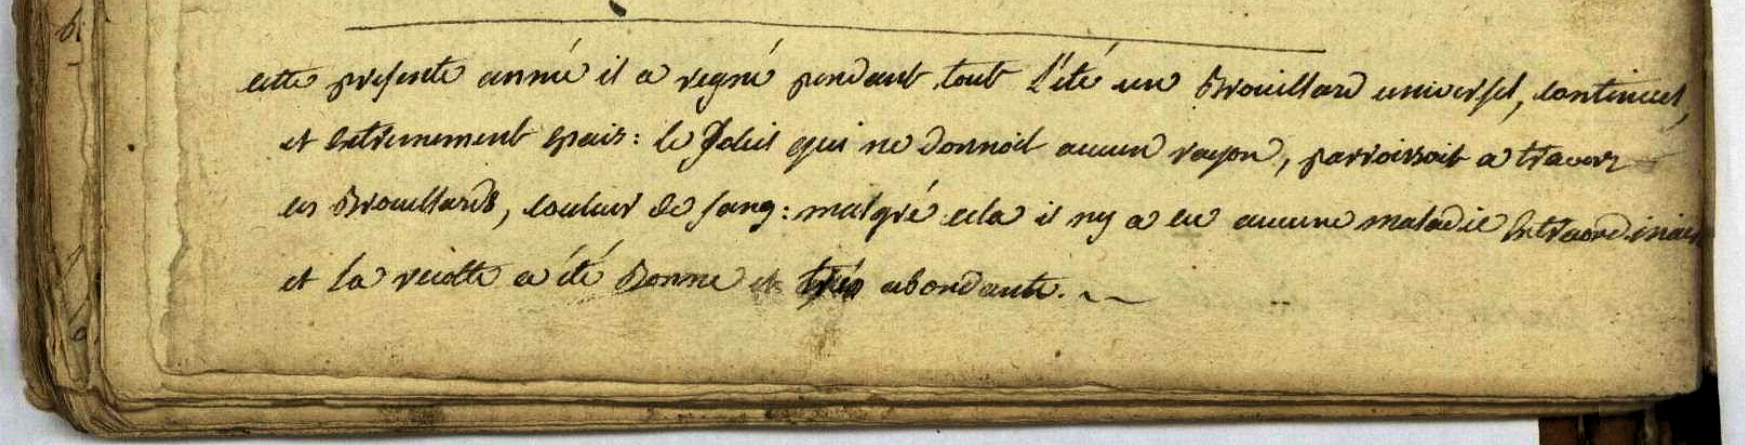 cette presente année il a regné pendant tout l'été un Brouillard universel, continuel,
et extremement epais: le Soleil qui ne donnoit aucun rayon, parroissoit a travers
ces Brouillards, couleur de sang: malgré cela il ny a eu aucune maladie Extraordinaire
et la recolte a été Bonne et très abondante.